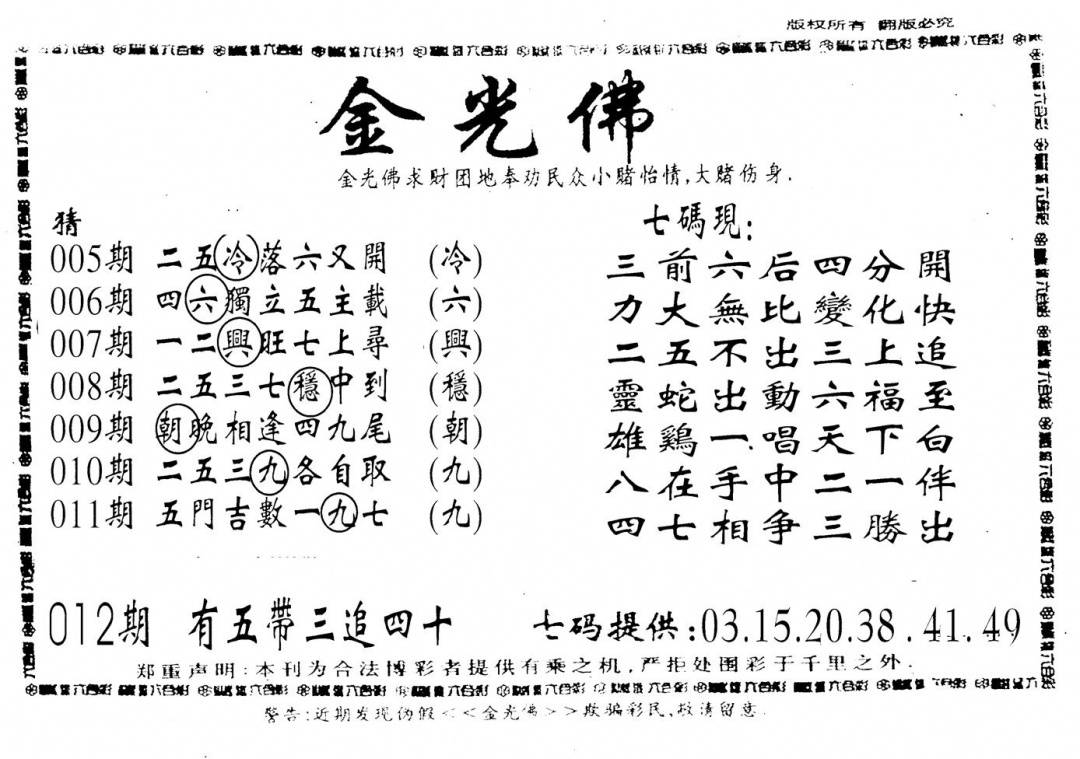 版权所有 翻版必究
金光佛
金光佛求财团地奉劝民众小赌怡情,大赌伤身.
猜
005期 二五冷落六又開 (冷)
006期 四六獨立五主載 (六)
007期 一二興旺七上尋 (興)
008期 二五三七穩中到 (穩)
009期 朝晚相逢四九尾 (朝)
010期 二五三九各自取 (九)
011期 五門吉數一九七 (九)
七碼現:
三前六后四分開
力大無比變化快
二五不出三上追
靈蛇出動六福至
雄鷄一唱天下白
八在手中二一伴
四七相争三勝出
012期 有五帶三追四十 七码提供:03.15.20.38.41.49
郑重声明:本刊为合法博彩者提供有乘之机,严拒处围彩于千里之外.
警告:近期发现伪假<<金光佛>>欺骗彩民,敬请留意.